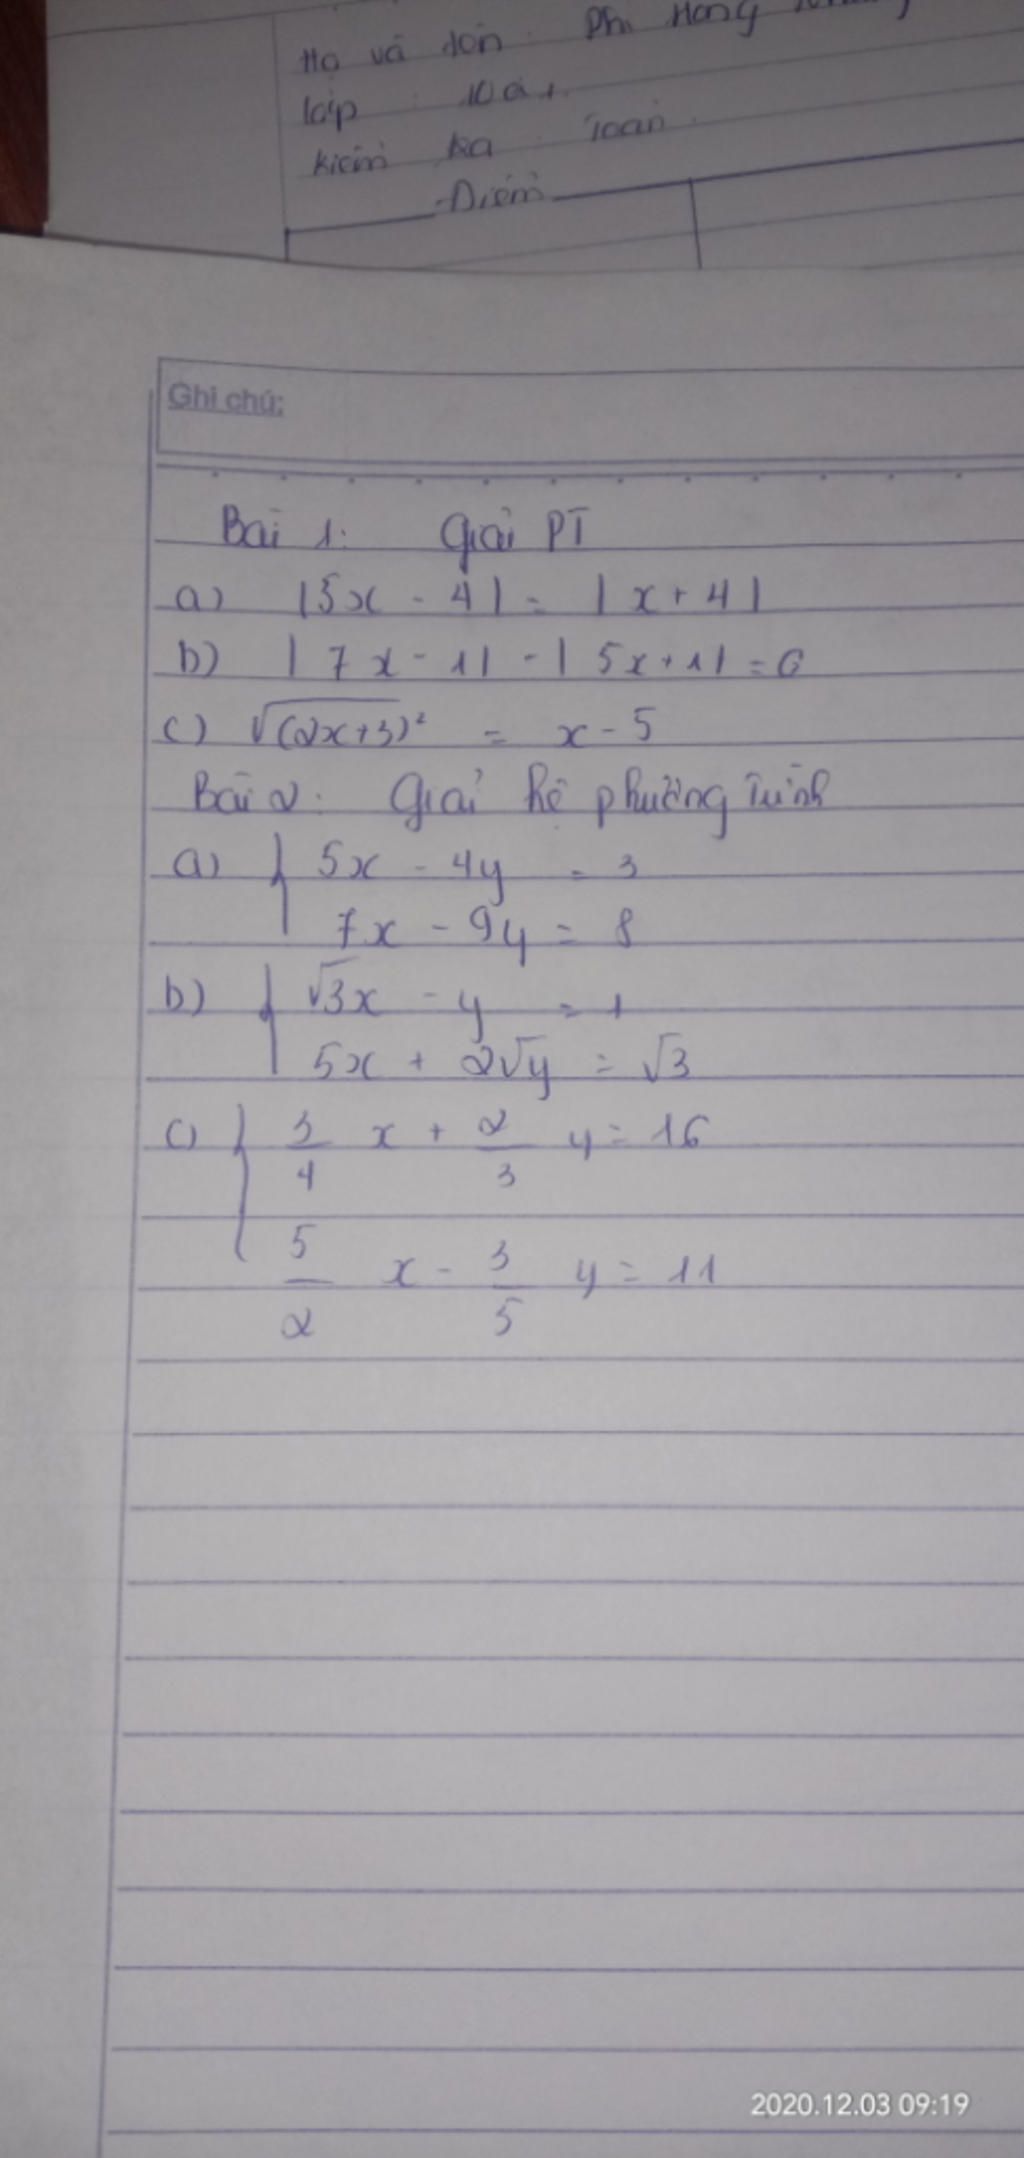 Họ và tên: Phi Hồng
lớp: 10a1
kiểm tra Toán
Điểm
Ghi chú:
Bài 1: Giải PT
a) |5x - 4| = |x + 4|
b) |7x - 1| - |5x + 1| = 0
c) √(2x+3)² = x - 5
Bài 2: Giải hệ phương trình
a) { 5x - 4y = 3
7x - 9y = 8
b) { √3x - y = 1
5x + 2√y = √3
c) { 3/4 x + 2/3 y = 16
5/2 x - 3/5 y = 11
2020.12.03 09:19